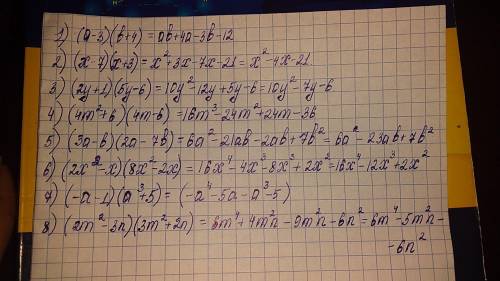 1) (a-3)(b+4) = ab+4a-3b-12
2) (x-7)(x+3) = x²+3x-7x-21 = x²-4x-21.
3) (2y+1)(5y-6) = 10y²-12y+5y-6=10y²-7y-6
4) (4m²+6)(4m-6) = 16m³-24m²+24m-36
5) (3a-b)(2a-7b) = 6a²-21ab-2ab+7b²=6a²-23ab+7b²
6) (2x²-x)(8x²-2x) = 16x⁴-4x³-8x³+2x²=16x⁴-12x³+2x²
7) (-a-1)(a³+5) = (-a⁴-5a-a³-5)
8) (2m²-3n)(3m²+2n) = 6m⁴+4m²n-9m²n-6n²=6m⁴-5m²n-
-6n²